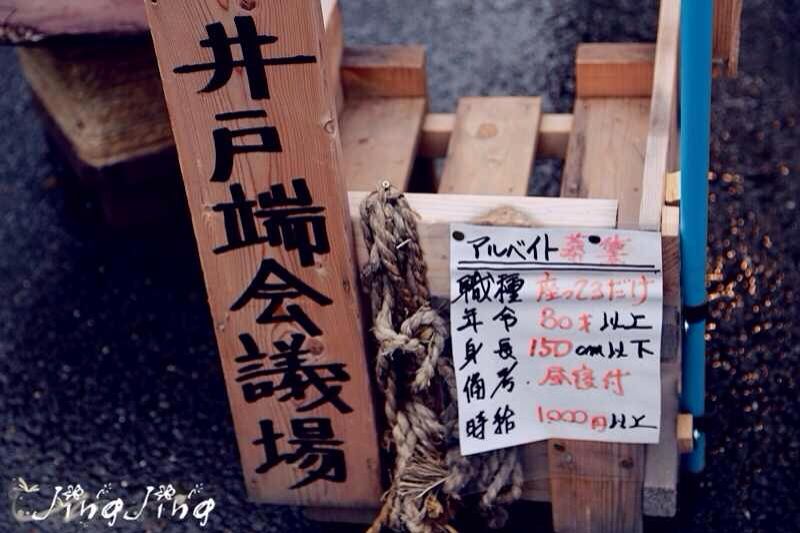 井戸端会議場
アルベイト募集
職種 座ってるだけ
年令 80才以上
身長 150cm以下
備考 昼寝付
時給 1,000円以上
JingJing